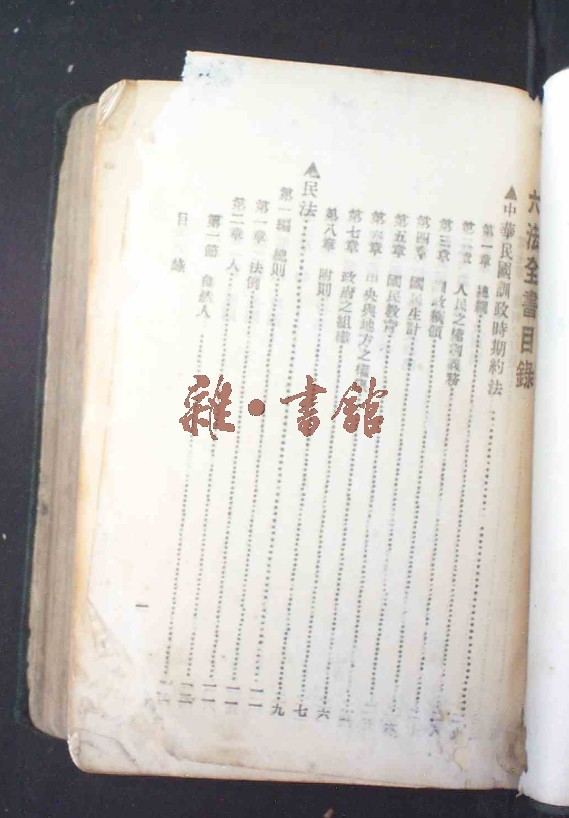 六法全書目錄
▲中華民國訓政時期約法
第一章 總綱
第二章 人民之權利義務
第三章 訓政綱領
第四章 國民生計
第五章 國民教育
第六章 中央與地方之權
第七章 政府之組織
第八章 附則 六
▲民法 七
第一編 總則 九
第一章 法例 一一
第二章 人 一一
第一節 自然人 一一
目 錄
一
雜·書館